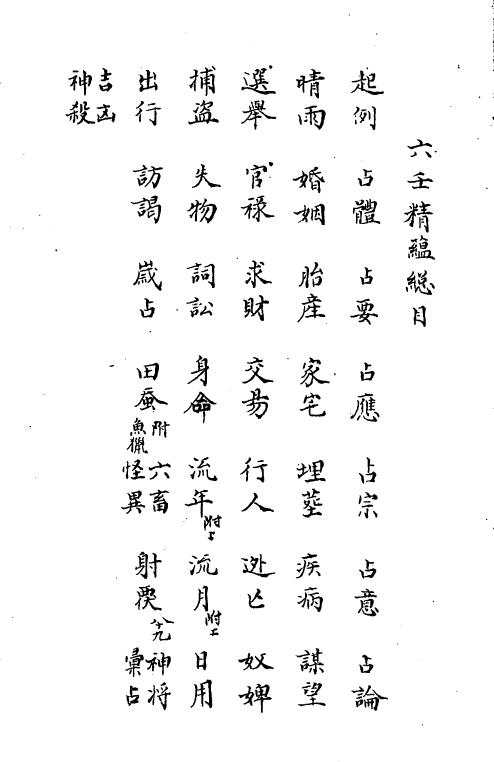 六壬精蘊總目
起例 占體 占要 占應 占宗 占意 占論
晴雨 婚姻 胎産 家宅 埋塟 疾病 謀望
選舉 官祿 求財 交昜 行人 迯亡 奴婢
捕盗 失物 詞訟 身命 流年附上 流月附上 日用
出行 訪謁 嵗占 田蚕附魚獵 六畜怪異 射覆 神將彙占
吉凶神殺